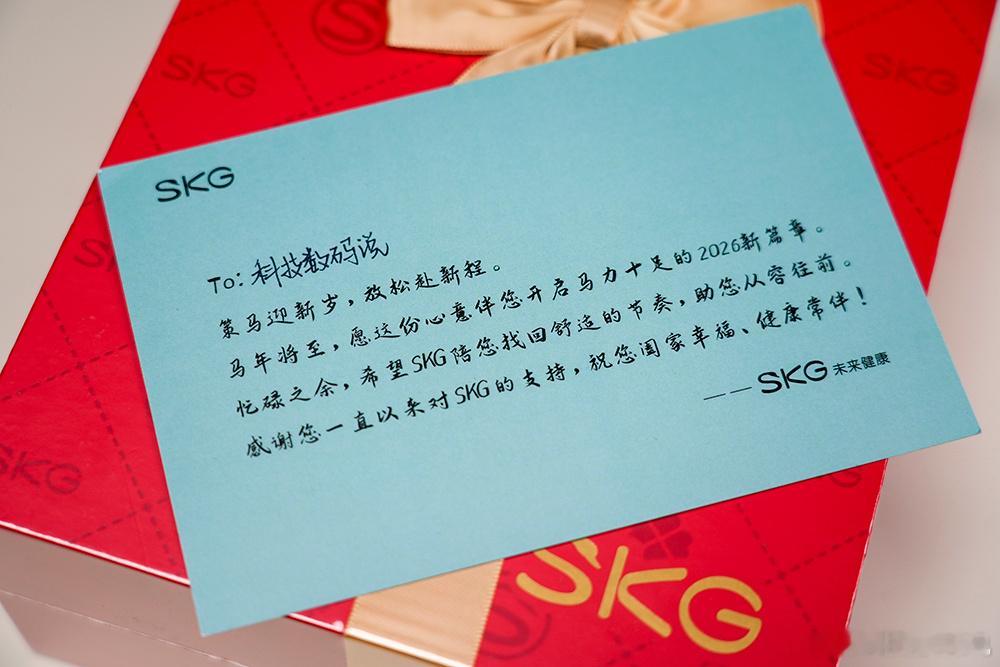 SKG
SKG
SKG
To: 科技数码说
策马迎新岁，放松赴新程。
马年将至，愿这份心意伴您开启马力十足的2026新篇章。
忙碌之余，希望SKG陪您找回舒适的节奏，助您从容往前。
感谢您一直以来对SKG的支持，祝您阖家幸福、健康常伴！
——SKG未来健康
SKG
SKG